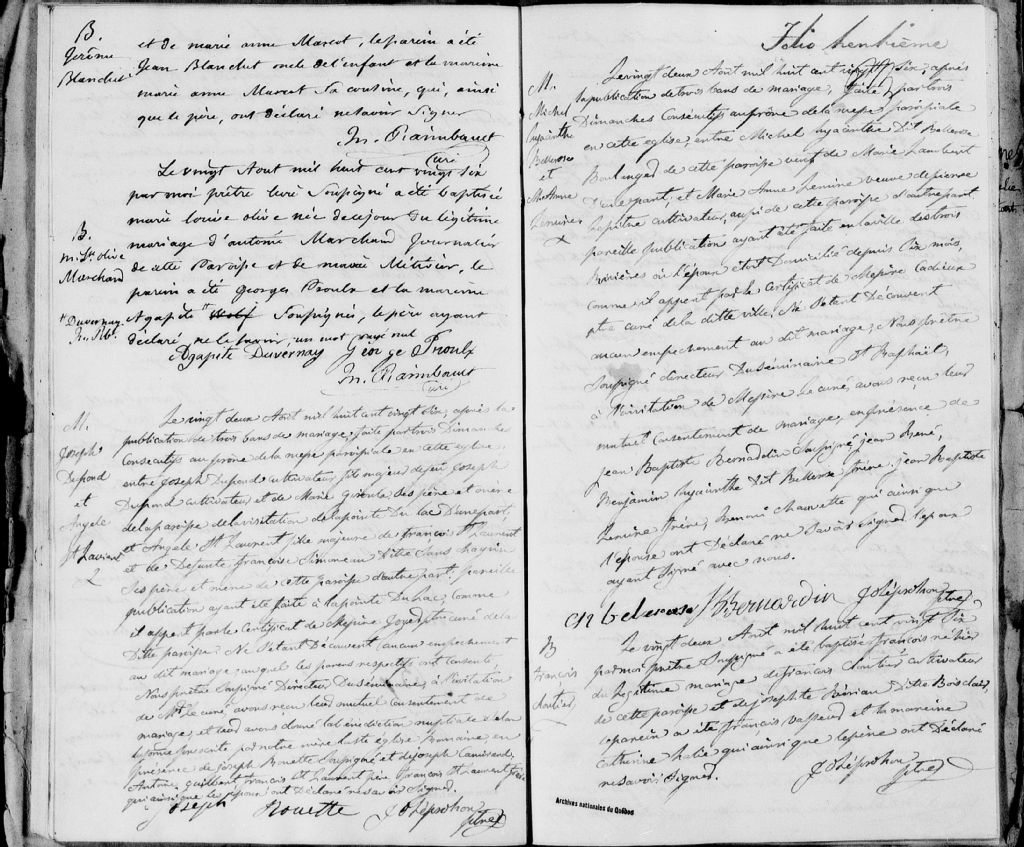 B.
Jerôme
Blanchet
et de marie anne Marcot, le parein a été
Jean Blanchet oncle de l'enfant et la mareine
marie anne Marcot Sa cousine, qui, ainsi
que le père, ont déclaré ne savoir Signer
Jn. Raimbault
curé
B.
m. Ls. olive
Marchand
Le vingt Aout mil huit cent vingt Six
par moi prêtre curé Soussigné a été baptisée
marie louise olive née de ce jour du légitime
mariage d'antoine Marchand Journalier
de cette Paroisse et de marie Métivier, le
parein a été Georges Proulx et la mareine
"Duvernay
Agapite " Soussignés, le père ayant
déclaré ne le savoir, un mot rayé nul
Agapite Duvernay George Proulx
Jn. Raimbault
curé
M.
Joseph
Dupond
et
Angele
St Laurent
2
Le vingt deux Aout mil huit cent vingt Six, après la
publication de trois bans de mariage, faite par trois Dimanches
Consecutifs au prône de la messe paroissiale en cette eglise,
entre Joseph Dupond cultivateur, fils majeur de feu Joseph
Dupond cultivateur et de Marie ses père et mère
de la paroisse de la visitation de la pointe Du Lac D'une part,
et Angele St Laurent fille majeure de francois St Laurent
et de Defunte francoise Simoneau Dite Sans chagrin
Ses père et mère de cette paroisse d'autre part. pareille
publication ayant été faite à la pointe Du Lac, comme
il appert par le certificat de Messire curé de la
Ditte paroisse; Ne S'étant Découvert aucun empechement
au dit mariage, auquel les parens respectifs ont consenti,
Nous prêtre Soussigné Directeur Du Séminaire, à l'invitation
de Mr. Le curé, avons reçu leur mutuel consentement de
mariage, et leur avons donné la bénédiction nuptiale selon
la forme prescrite par notre mère la Ste église Romaine, en
présence de Joseph Rouette Soussigné et de Joseph
Antoine francois St Laurent père francois St Laurent frère
qui ainsi que les époux ont Déclaré ne savoir Signer.
Joseph Rouette J O Leprohon
ptre
Folio trentième
M.
Michel
hyacinthe
Bellerose
et
M. Anne
Lemire
Le vingt deux Aout mil huit cent vingt Six, après
la publication de trois bans de mariage, faite par trois
Dimanches Consecutifs au prône de la messe paroissiale
en cette eglise, entre Michel hyacinthe Dit Bellerose
Boulanger de cette paroisse veuf de Marie Lambert
D'une part, et Marie Anne Lemire veuve de pierre
cultivateur, aussi de cette paroisse d'autre part
pareille publication ayant été faite en la ville des trois
Rivières où l'époux étoit Domicilié depuis Six mois,
comme il appert par le certificat de Messire Cadieux
ptre curé de la ditte ville; Ne S'étant Découvert
aucun empechement au dit mariage; Nous prêtre
Soussigné directeur Du Séminaire St Raphaël,
à l'invitation de Messire Le curé, avons reçu leur
mutuel consentement de mariage, en présence de
Jean Baptiste Bernardin Soussigné, jean René,
Benjamin hyacinthe Dit Bellerose frère, jean Baptiste
Lemire frère, qui ainsi que
l'épouse ont Déclaré ne Savoir Signer, l'époux
ayant Signé avec nous.
Bernardin J O Leprohon
ptre
B
Francois
Le vingt deux Aout mil huit cent vingt Six
par moi prêtre Soussigné a été baptisé francois né hier
du légitime mariage de francois cultivateur
de cette paroisse et de josephte Dite Boisclair,
le parein a été francois et la mareine
qui ainsi que le père ont Déclaré
ne savoir Signer.
J O Leprohon
ptre
Archives nationales du Québec